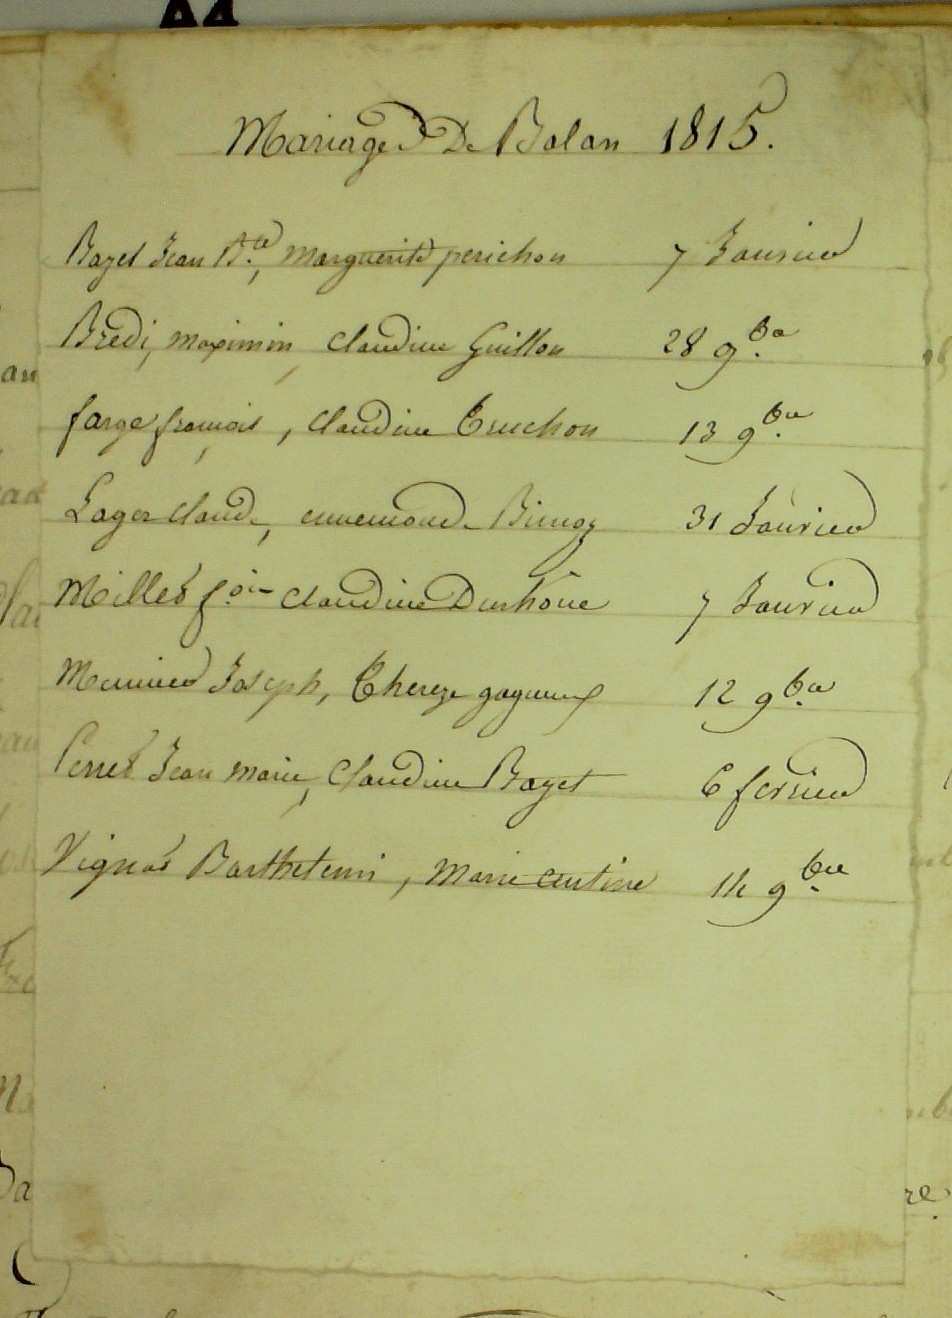 Mariages De Balan 1815.
Bayet Jean Bte, marguerite perichon 7 Janvier
Bredi, maximin, claudine Guillon 28 9bre
farge françois, claudine Truchon 13 9bre
Lager claude, ennemonde 31 Janvier
Millet fois claudine 7 Janvier
Meunier Joseph, Thereze 12 9bre
Perret Jean marie, claudine Bayet 6 fevrier
Vignat Barthelemi, marie 14 9bre